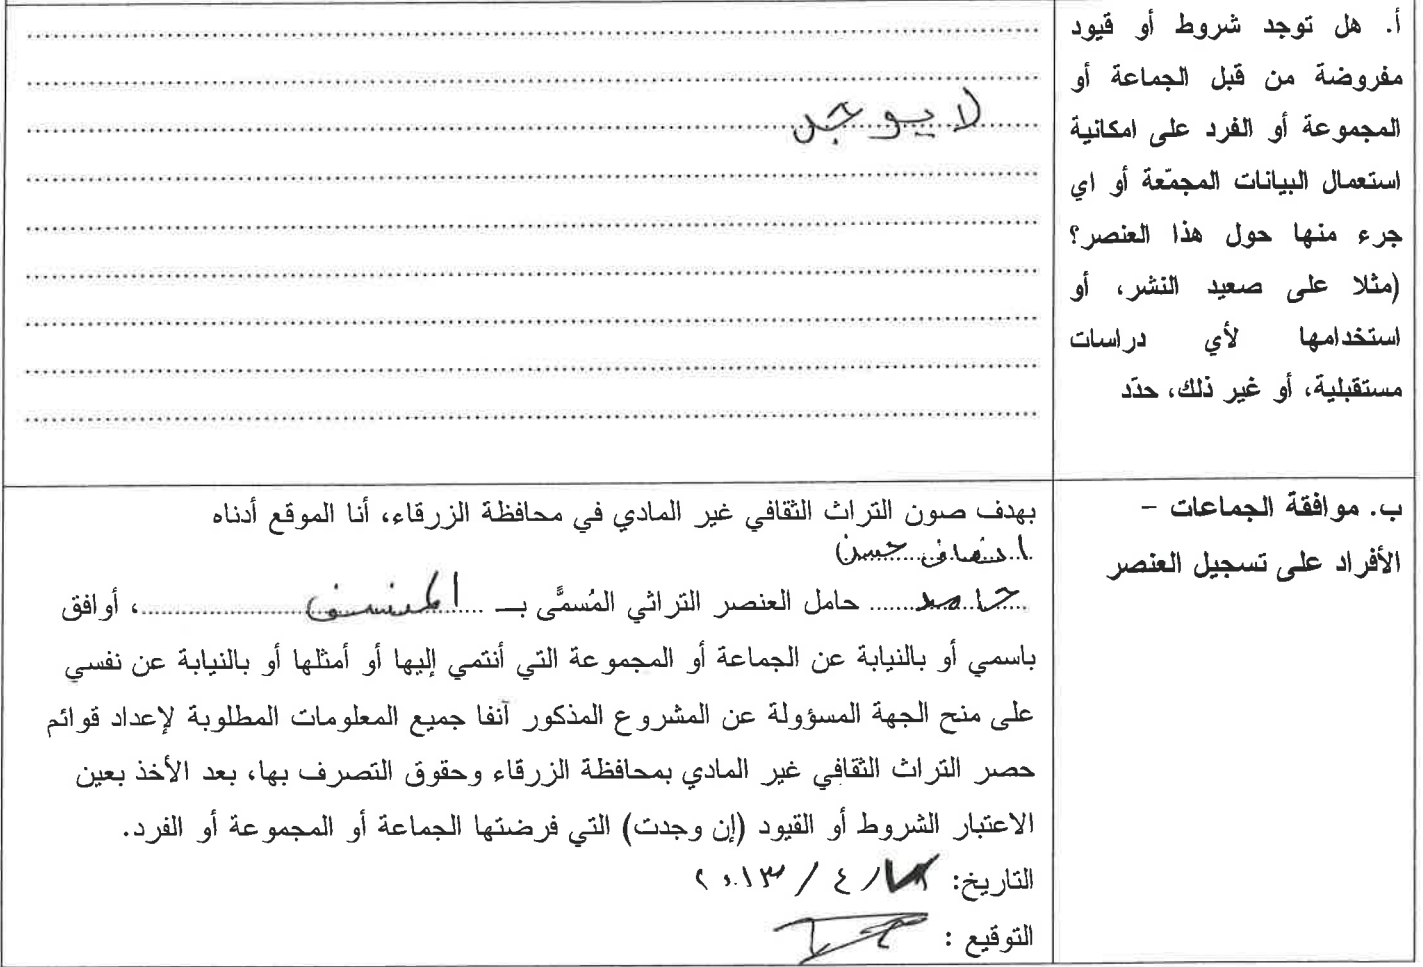 أ. هل توجد شروط أو قيود
مفروضة من قبل الجماعة أو
المجموعة أو الفرد على امكانية
استعمال البيانات المجمّعة أو اي
جرء منها حول هذا العنصر؟
(مثلا على صعيد النشر، أو
استخدامها لأي دراسات
مستقبلية، أو غير ذلك، حدّد
لا يوجد
ب. موافقة الجماعات –
الأفراد على تسجيل العنصر
بهدف صون التراث الثقافي غير المادي في محافظة الزرقاء، أنا الموقع أدناه
حسن
حامد حامل العنصر التراثي المُسمَّى بـ المنسف، أوافق
باسمي أو بالنيابة عن الجماعة أو المجموعة التي أنتمي إليها أو أمثلها أو بالنيابة عن نفسي
على منح الجهة المسؤولة عن المشروع المذكور آنفا جميع المعلومات المطلوبة لإعداد قوائم
حصر التراث الثقافي غير المادي بمحافظة الزرقاء وحقوق التصرف بها، بعد الأخذ بعين
الاعتبار الشروط أو القيود (إن وجدت) التي فرضتها الجماعة أو المجموعة أو الفرد.
التاريخ: / ٤ / ٢٠١٣
التوقيع :